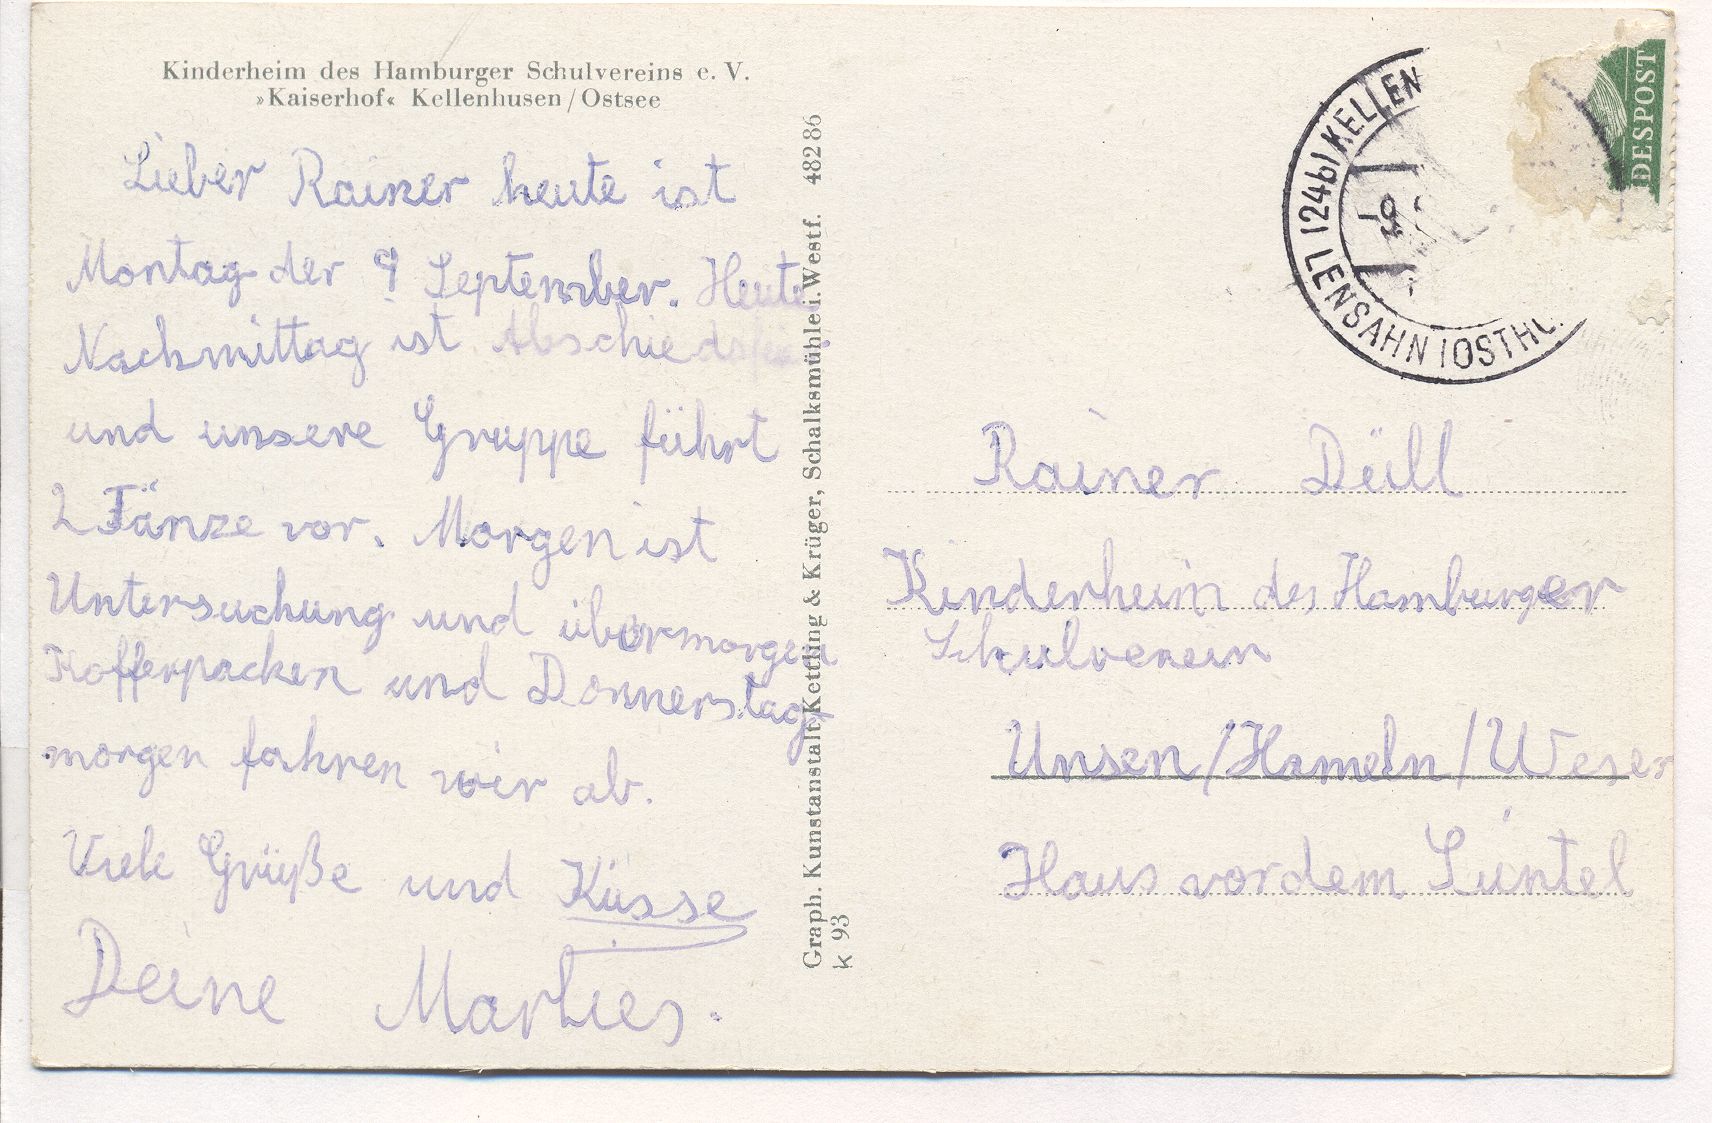 Kinderheim des Hamburger Schulvereins e. V.
»Kaiserhof« Kellenhusen/Ostsee
Lieber Rainer heute ist
Montag der 9 September. Heute
Nachmittag ist Abschiedsfeier
und unsere Gruppe führt
2 Tänze vor. Morgen ist
Untersuchung und übermorgen
Kofferpacken und Donnerstag
morgen fahren wir ab.
Viele Grüße und Küsse
Deine Marlies.
Graph. Kunstanstalt Ketling & Krüger, Schalksmühle i. Westf. 48286
K 93
(24b) KELLEN
LENSAHN (OSTHO
DESPOST
Rainer Düll
Kinderheim des Hamburger
Schulverein
Unsen/Hameln/Weser
Haus vor dem Süntel